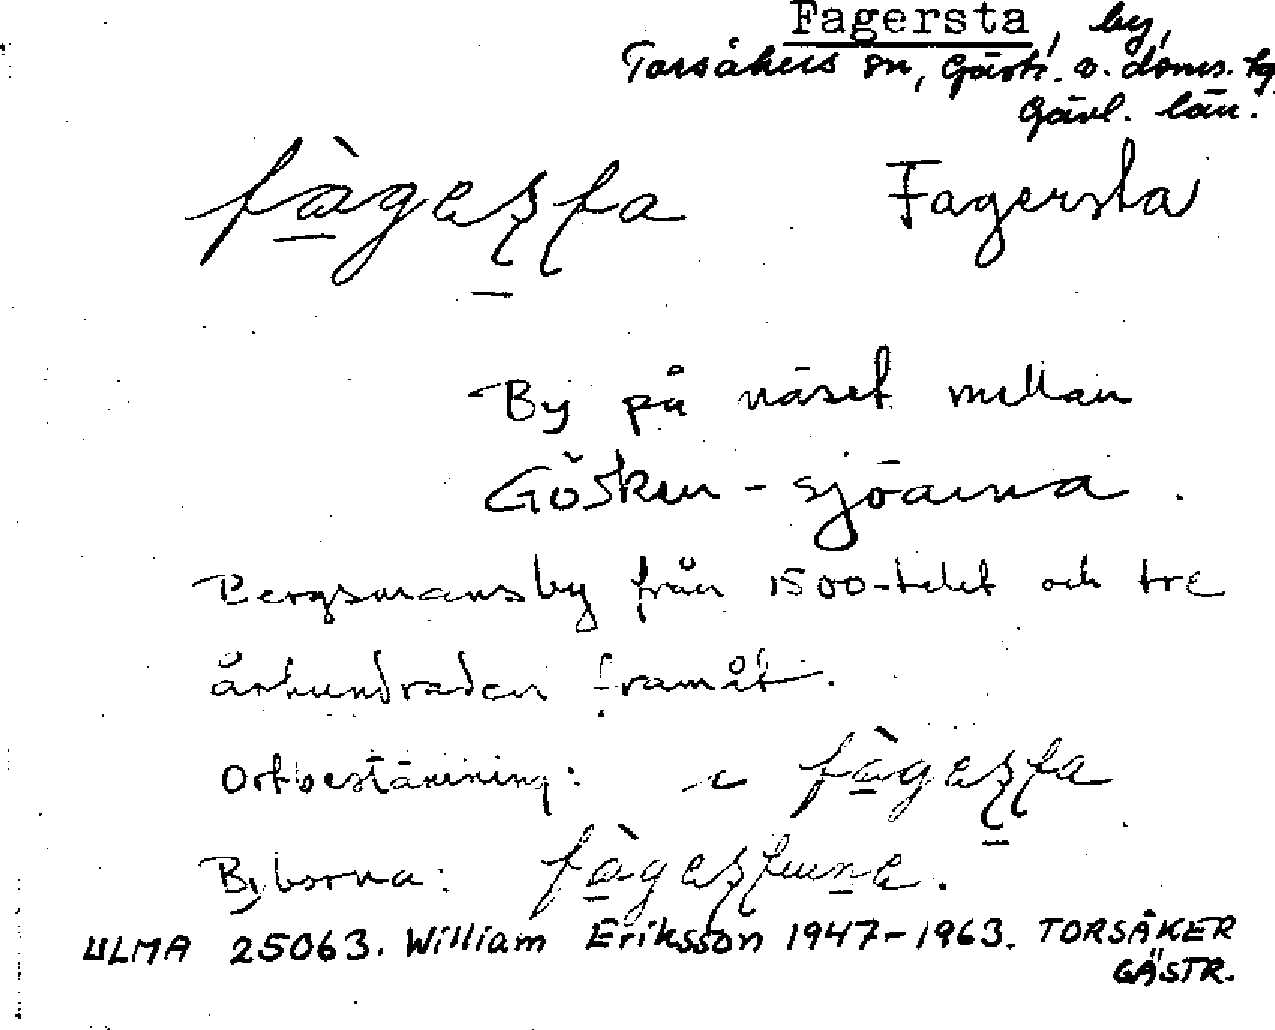 Fagersta, by,
Torsåkers sn, Gästr. ö. doms. hg
Gävl. län.
fàgeʂʈa Fagersta
By på näset mellan
Gösken-sjöarna.
Bergsmansby från 1500-talet och tre
århundraden framåt.
Ortbestämning: i fàgeʂʈa
Byborna:
ULMA 25063. William Eriksson 1947-1963. TORSÅKER
GÄSTR.